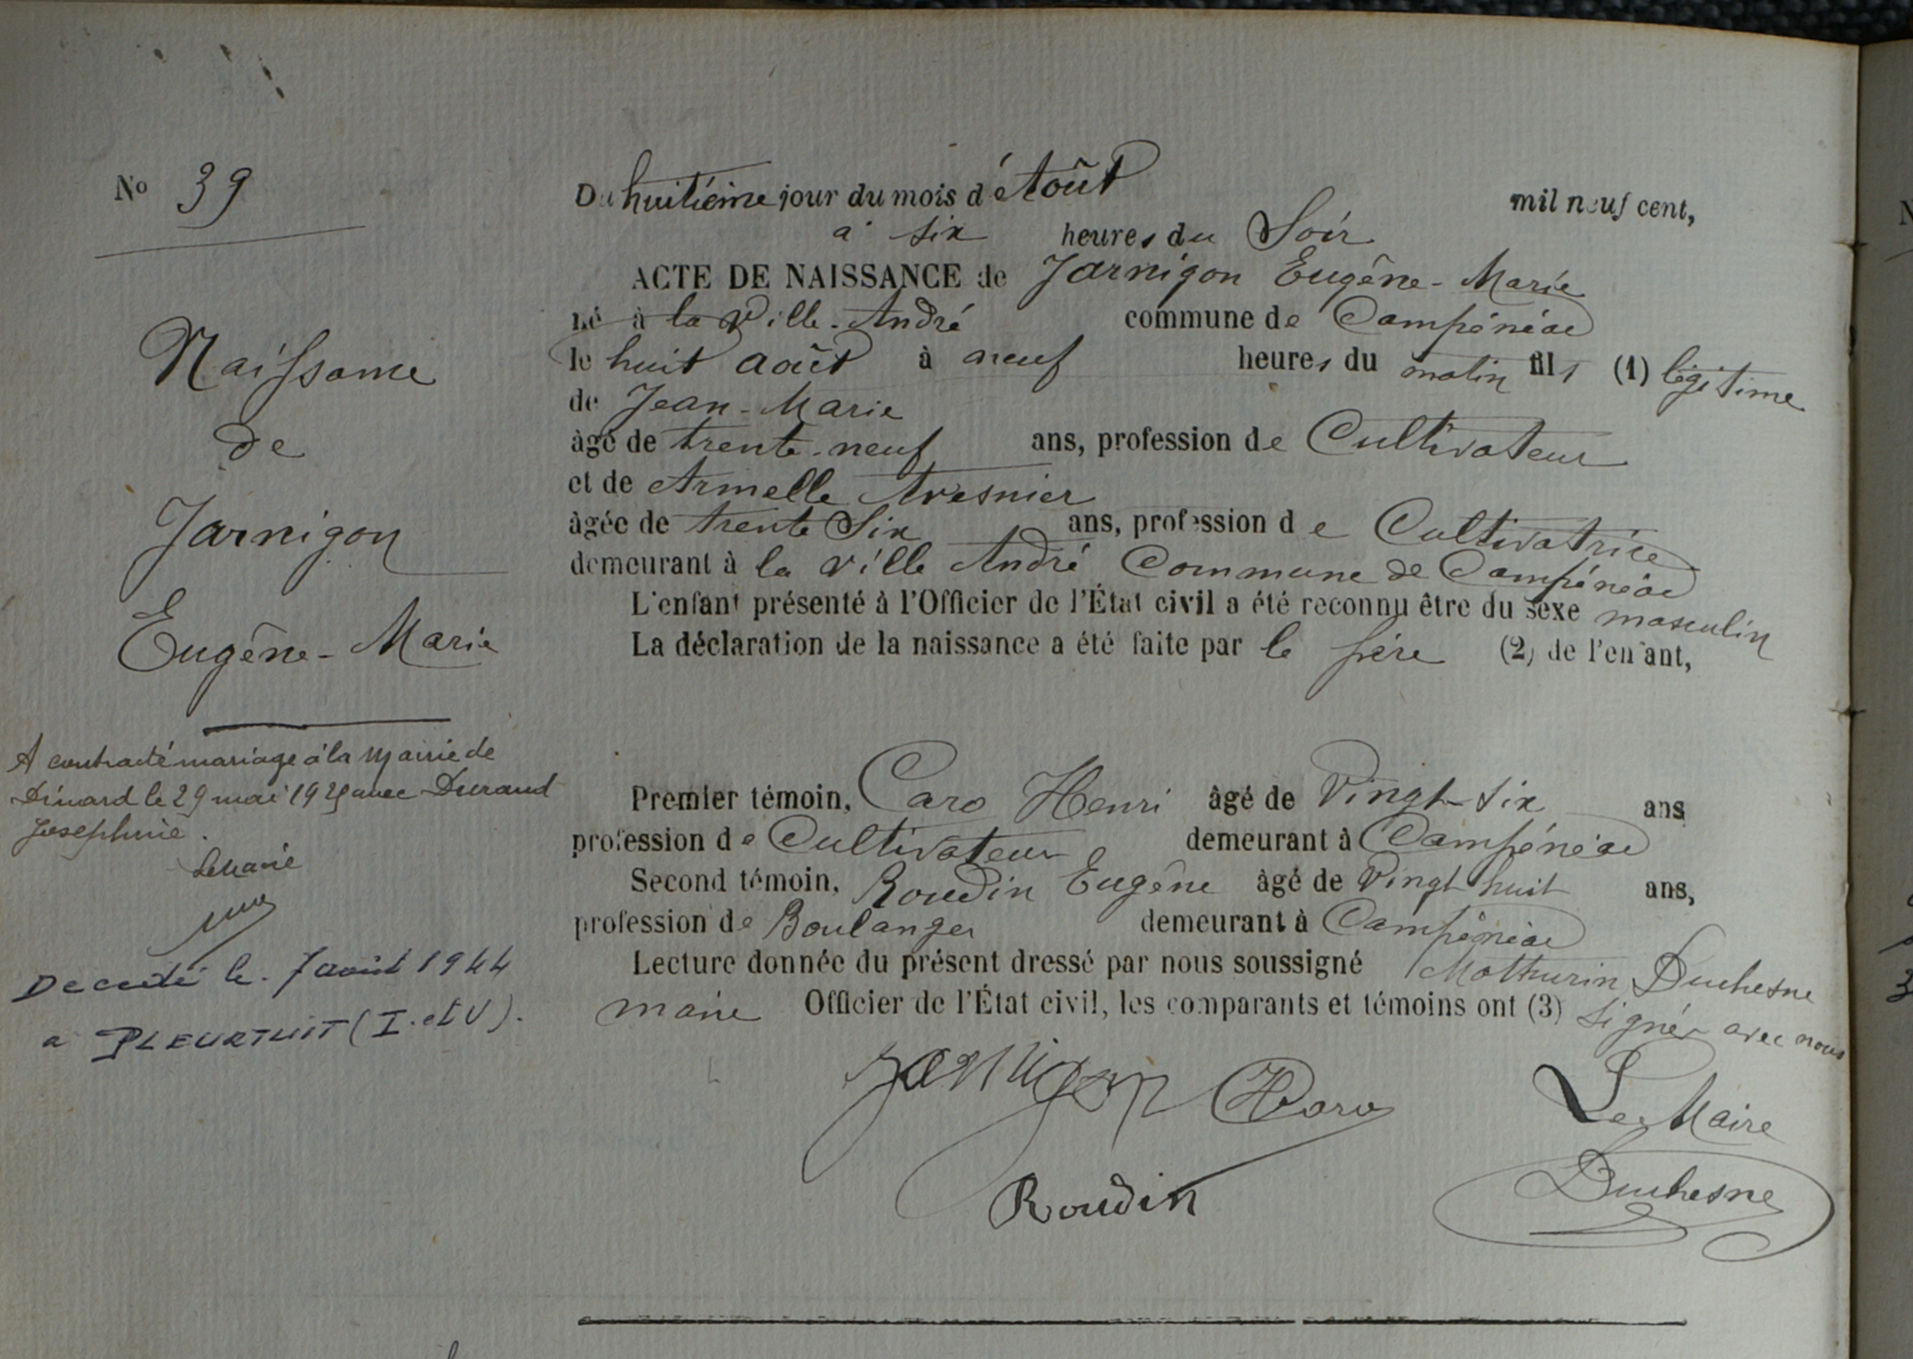 No 39
Du huitième jour du mois d'Août mil neuf cent,
à six heures du Soir
ACTE DE NAISSANCE de Jarnigon Eugêne-Marie
né à la Ville-André commune de Campénéac
le huit août à neuf heures du matin fils (1) légitime
de Jean-Marie
âgé de trente-neuf ans, profession de Cultivateur
et de Armelle
âgée de trente Six ans, profession de Cultivatrice
demeurant à la ville André Commune de Campénéac
L'enfant présenté à l'Officier de l'État civil a été reconnu être du sexe masculin
La déclaration de la naissance a été faite par le père (2) de l'enfant,
Premier témoin, Caro Henri âgé de Vingt-six ans
profession de Cultivateur demeurant à Campénéac
Second témoin, Roudin Eugêne âgé de Vingt huit ans,
profession de Boulanger demeurant à Campénéac
Lecture donnée du présent dressé par nous soussigné Mathurin Duchesne
maire Officier de l'État civil, les comparants et témoins ont (3) signé avec nous
Jarnigon HCaro
Le Maire
Roudin
Duchesne
Naissance
de
Jarnigon
Eugêne-Marie
A contracté mariage à la Mairie de
Dinard le 29 mai avec Durand
Josephine.
Le Maire
Decedé le 7 août 1944
a PLEURTUIT (I. et V).